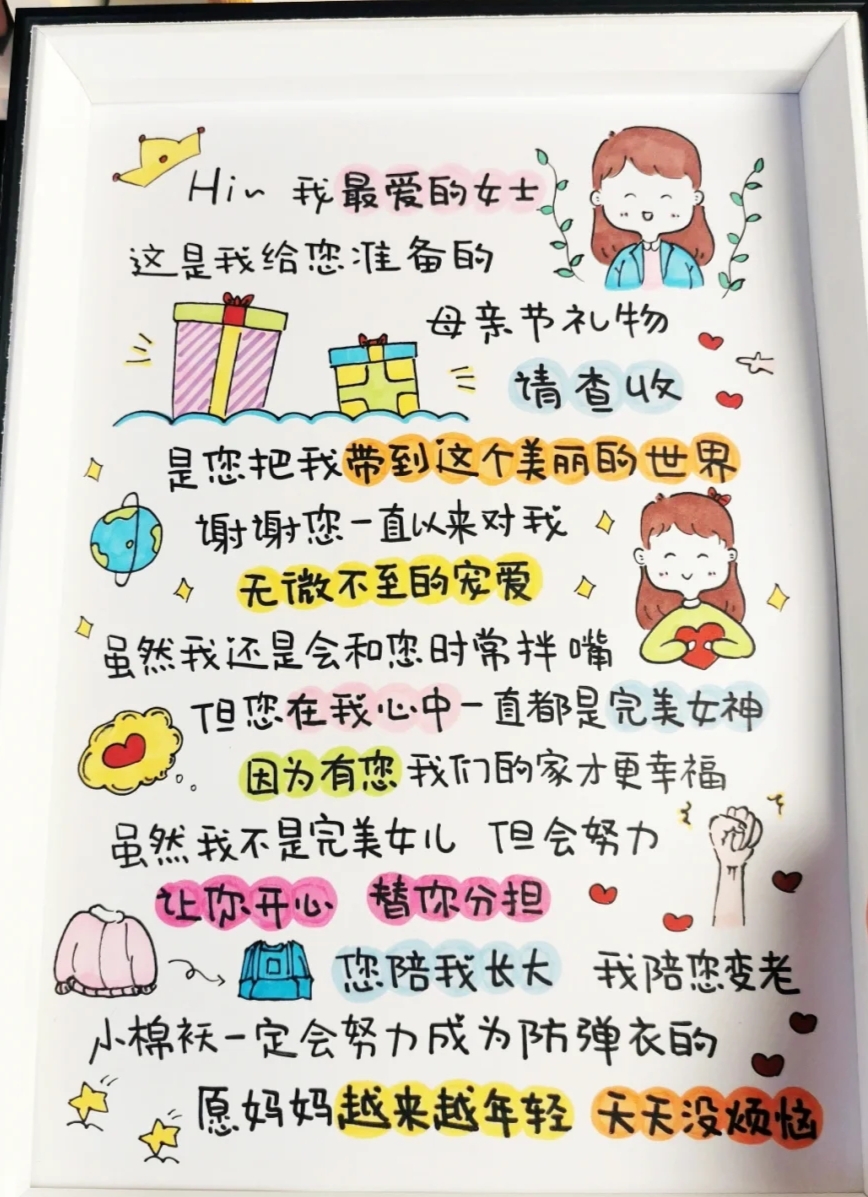 Hi~ 我最爱的女士
这是我给您准备的
母亲节礼物
请查收
是您把我带到这个美丽的世界
谢谢您一直以来对我
无微不至的宠爱
虽然我还是会和您时常拌嘴
但您在我心中一直都是完美女神
因为有您我们的家才更幸福
虽然我不是完美女儿 但会努力
让你开心 替你分担
您陪我长大 我陪您变老
小棉袄一定会努力成为防弹衣的
愿妈妈越来越年轻 天天没烦恼